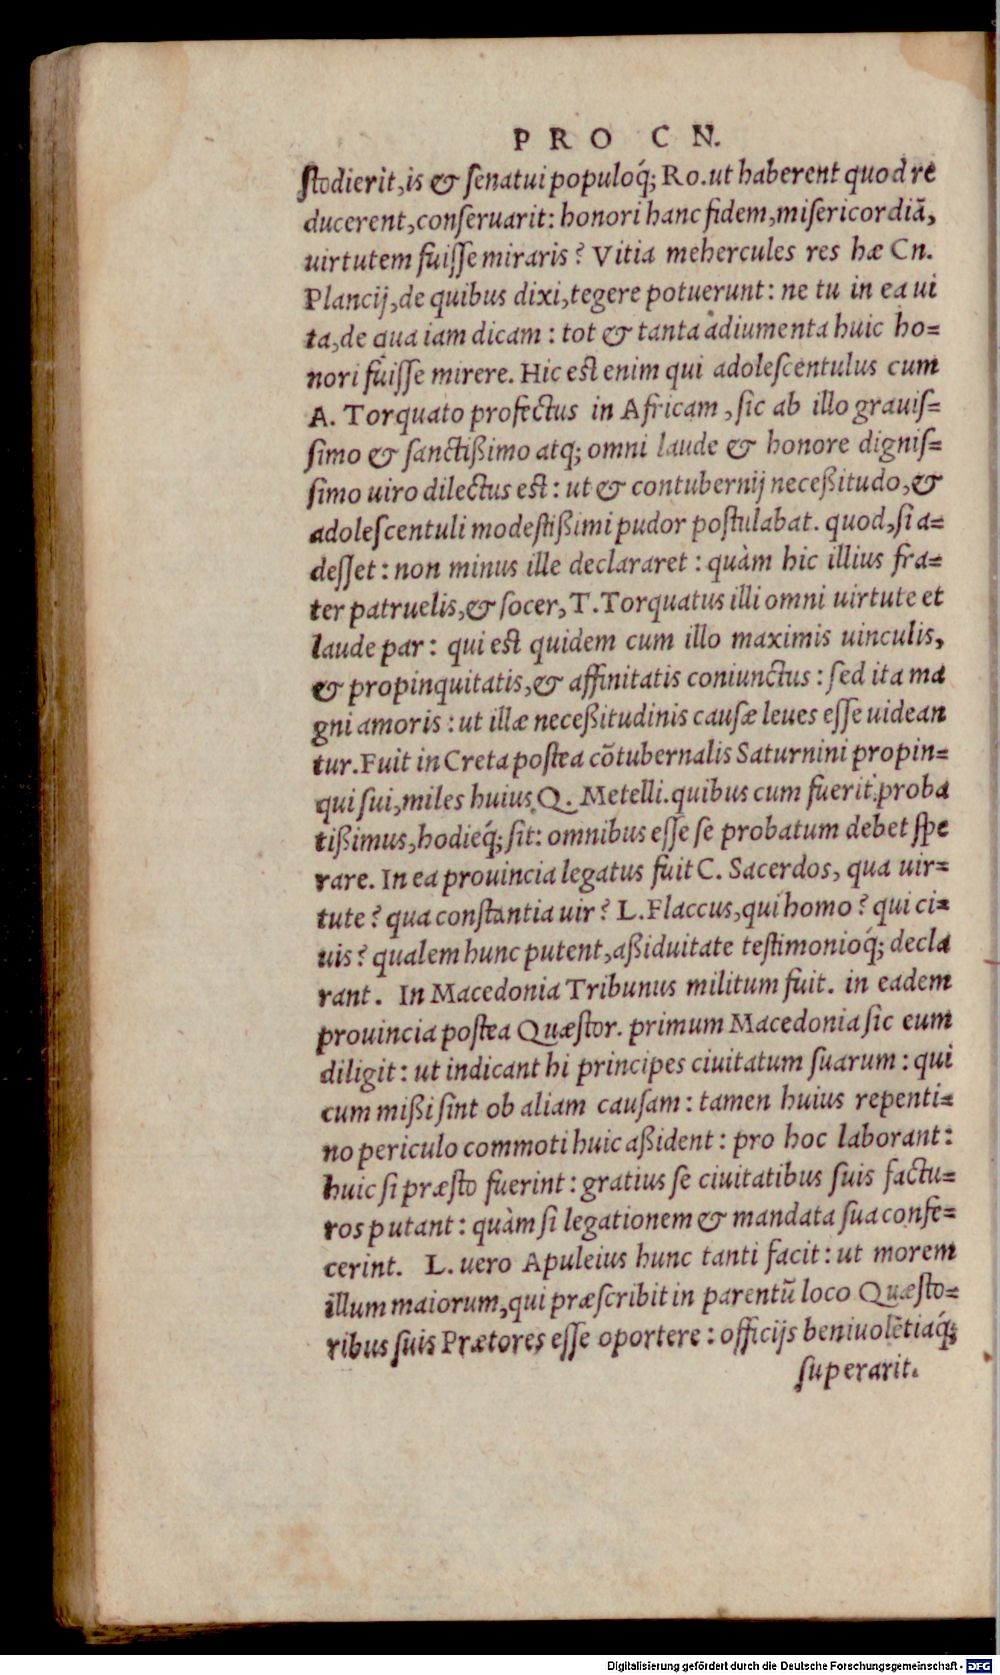 PRO CN.
ſtodierit, is & ſenatui populoq́; Ro. ut haberent quod re
ducerent, conſeruarit: honori hanc fidem, miſericordiã,
uirtutem fuiſſe miraris? Vitia mehercules res hæ Cn.
Plancij, de quibus dixi, tegere potuerunt: ne tu in ea ui
ta, de qua iam dicam: tot & tanta adiumenta huic ho=
nori fuiſſe mirere. Hic eſt enim qui adoleſcentulus cum
A. Torquato profectus in Africam, ſic ab illo grauiſ=
ſimo & ſanctißimo atq; omni laude & honore digniſ=
ſimo uiro dilectus eſt: ut & contubernij neceßitudo, &
adoleſcentuli modeſtißimi pudor poſtulabat. quod, ſi a=
deſſet: non minus ille declararet: quàm hic illius fra=
ter patruelis, & ſocer, T. Torquatus illi omni uirtute et
laude par: qui eſt quidem cum illo maximis uinculis,
& propinquitatis, & affinitatis coniunctus: ſed ita ma
gni amoris: ut illæ neceßitudinis cauſæ leues eſſe uidean
tur. Fuit in Creta poſtea cõtubernalis Saturnini propin=
qui ſui, miles huius Q. Metelli. quibus cum fuerit proba
tißimus, hodieq́; ſit: omnibus eſſe ſe probatum debet ſpe
rare. In ea prouincia legatus fuit C. Sacerdos, qua uir=
tute? qua conſtantia uir? L. Flaccus, qui homo? qui ci=
uis? qualem hunc putent, aßiduitate teſtimonioq́; decla
rant. In Macedonia Tribunus militum fuit. in eadem
prouincia poſtea Quæſtor. primum Macedonia ſic eum
diligit: ut indicant hi principes ciuitatum ſuarum: qui
cum mißi ſint ob aliam cauſam: tamen huius repenti=
no periculo commoti huic aßident: pro hoc laborant:
huic ſi præſto fuerint: gratius ſe ciuitatibus ſuis factu=
ros putant: quàm ſi legationem & mandata ſua confe=
cerint. L. uero Apuleius hunc tanti facit: ut morem
illum maiorum, qui præſcribit in parentũ loco Quæſto=
ribus ſuis Prætores eſſe oportere: officijs beniuolẽtiaq́;
ſuperarit.
Digitalisierung gefördert durch die Deutsche Forschungsgemeinschaft - DFG